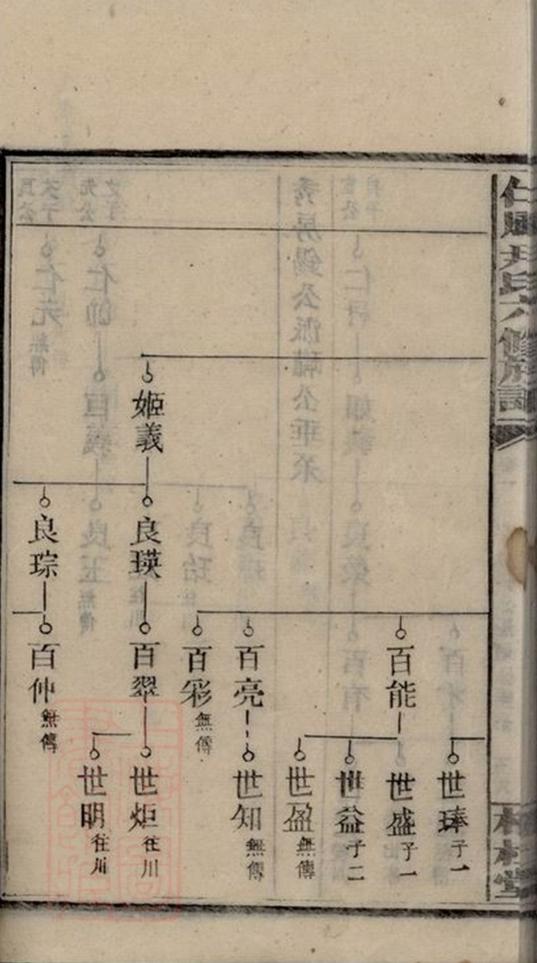 氏六修族譜
世琫子一
百能
世盛子一
世益子二
世盈無傳
百亮
世知無傳
百彩無傳
姬義
良瑛
百翠
世炬往川
世明往川
良琮
百仲無傳